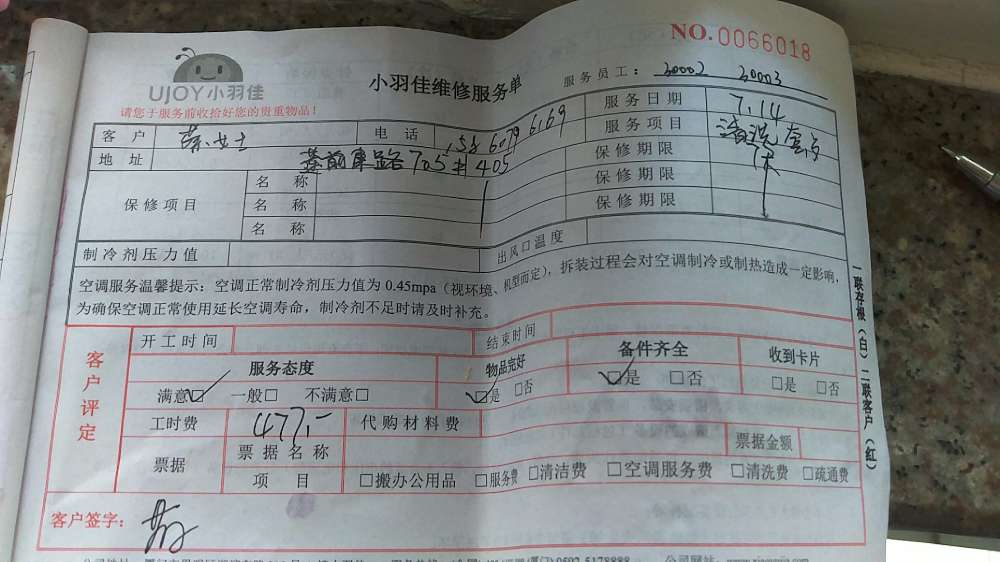 NO.0066018
UJOY小羽佳
小羽佳维修服务单
服务员工：30002 30003
请您于服务前收拾好您的贵重物品！
客户 蔡女士 电话 158 6079 6169 服务日期 7.14
地址 莲前東路705#405 服务项目 清洗
保修项目 名称 保修期限
名称 保修期限
名称 保修期限
制冷剂压力值 出风口温度
空调服务温馨提示：空调正常制冷剂压力值为 0.45mpa（视环境、机型而定），拆装过程会对空调制冷或制热造成一定影响，
为确保空调正常使用延长空调寿命，制冷剂不足时请及时补充。
客户评定
开工时间 结束时间
服务态度 物品完好 备件齐全 收到卡片
满意☑ 一般□ 不满意□ ☑是 □否 ☑是 □否 □是 □否
工时费 477.- 代购材料费
票据 票据名称 票据金额
项目 □搬办公用品 □服务费 □清洁费 □空调服务费 □清洗费 □疏通费
客户签字：
一联存根（白） 二联客户（红）